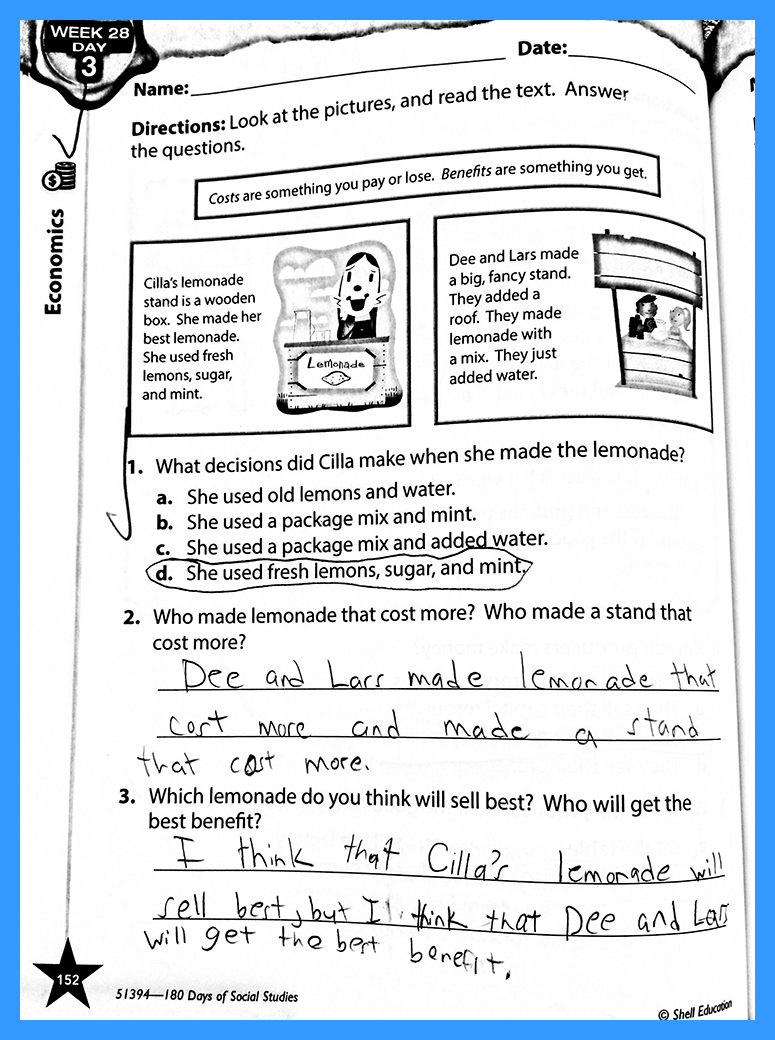 WEEK 28
DAY
3
Name:
Date:
Directions: Look at the pictures, and read the text. Answer
the questions.
Costs are something you pay or lose. Benefits are something you get.
Economics
Cilla's lemonade
stand is a wooden
box. She made her
best lemonade.
She used fresh
lemons, sugar,
and mint.
Lemonade
Dee and Lars made
a big, fancy stand.
They added a
roof. They made
lemonade with
a mix. They just
added water.
1. What decisions did Cilla make when she made the lemonade?
a. She used old lemons and water.
b. She used a package mix and mint.
c. She used a package mix and added water.
d. She used fresh lemons, sugar, and mint.
2. Who made lemonade that cost more? Who made a stand that
cost more?
Dee and Lars made lemonade that
cost more and made a stand
that cost more.
3. Which lemonade do you think will sell best? Who will get the
best benefit?
I think that Cilla's lemonade will
sell best, but I think that Dee and Lars
will get the best benefit.
152
51394—180 Days of Social Studies
© Shell Education